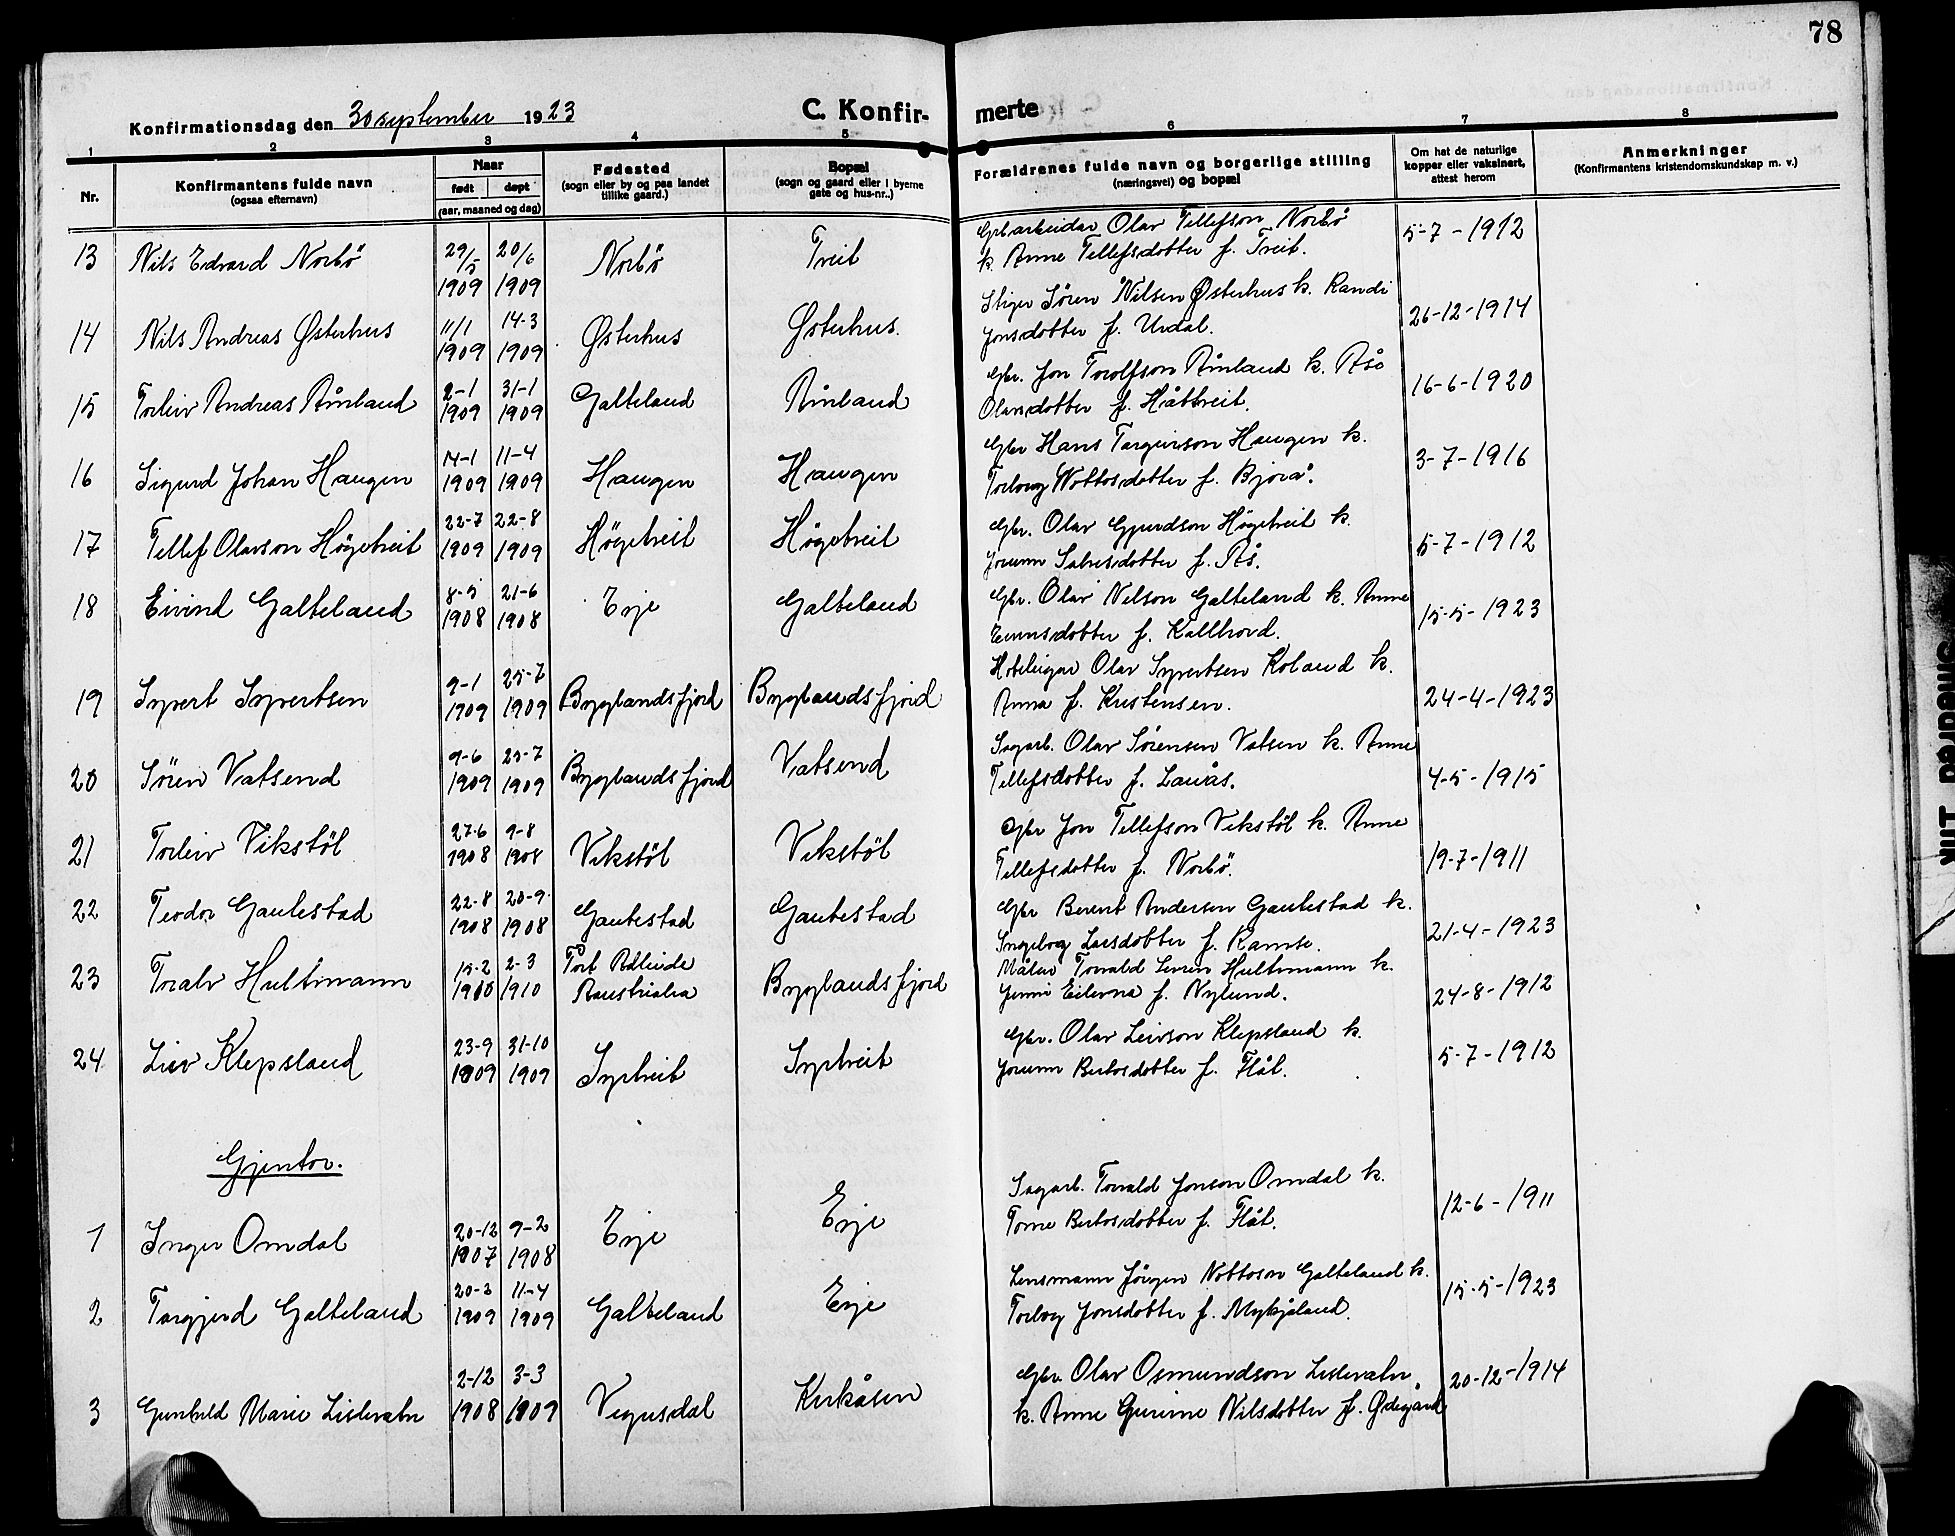 78
Konfirmationsdag den 30 september 1923
C. Konfir- merte
1 2 3 4 5 6 7 8
Nr.
Konfirmantens fulde navn
(ogsaa efternavn)
Naar
født døpt
(aar, maaned og dag)
Fødested
(sogn eller by og paa landet
tillike gaard.)
Bopæl
(sogn og gaard eller i byerne
gate og hus-nr..)
Forældrenes fulde navn og borgerlige stilling
(næringsvei) og bopæl
Om hat de naturlige
kopper eller vaksinert,
attest herom
Anmerkninger
(Konfirmantens kristendomskundskap m. v.)
13 Nils Edvard Norbö 29/5 1909 20/6 1909 Norbö Treit
Gbrarbeidar Olav Tellefson Norbö
k. Anne Tellefsdotter f. Treit. 5-7-1912
14 Nils Andreas Østerhus 11/1 1909 14-3 1909 Østerhus Østerhus.
Stiger Sören Nilsen Østerhus k. Randi
Jonsdotter f. Urdal. 26-12-1914
15 Torleiv Andreas Åmland 2-1 1909 31-1 1909 Galteland Åmland
Gbr. Jon Torolfson Åmland k. Åse
Olavsdotter f. Håttreit. 16-6-1920
16 Sigurd Johan Haugen 14-1 1909 11-4 1909 Haugen Haugen
Gbr Hans Targeirson Haugen k.
Torborg Nottosdotter f. Bjorå. 3-7-1916
17 Tellef Olavson Högetreit 22-7 1909 22-8 1909 Högetreit Högetreit
Gbr. Olav Gjurdson Högetreit k.
Jorunn Salvesdotter f. Ås. 5-7-1912
18 Eivind Galteland 8-5 1908 21-6 1908 Evje Galteland
Gbr. Olav Nelson Galteland k. Anne
f. Kallhovd. 15-5-1923
19 Syvert Syvertsen 9-1 1909 25-7 1909 Byglandsfjord Byglandsfjord
Hoteleigar Olav Syvertsen Roland k.
Anna f. Kristensen. 24-4-1923
20 Sören Vatsend 9-6 1909 25-7 1909 Byglandsfjord Vatsend
Sagarb. Olav Sörensen Vatsen k. Anne
Tellefsdotter f. Lauås. 4-5-1915
21 Torleiv Vikstöl 27-6 1908 9-8 1908 Vikstöl Vikstöl
Gbr Jon Tellefson Vikstöl k. Anne
Tellefsdotter f. Norbö. 19-7-1911
22 Teodor Gautestad 22-8 1908 20-9 1908 Gautestad Gautestad
Gbr Berent Andersen Gautestad k.
Ingeborg Larsdotter f. Ramse. 21-4-1923
23 Toralv Hultmann 15-2 1910 2-3 1910 Port Adleide
Australia Byglandsfjord
Målar Torvald Hultmann k.
Jenni f. Nylund. 24-8-1912
24 Liev Klepsland 23-9 1909 31-10 1909 Syrtveit Syrtveit
Gbr. Olav Leivson Klepsland k.
Jorunn Bertosdotter f. Flåt. 5-7-1912
Gjentor.
1 Inger Omdal 20-12 1907 9-2 1908 Evje Evje
Sagarb. Torvald Jonson Omdal k.
Tome Bertosdotter f. Flåt. 12-6-1911
2 Targjerd Galteland 20-3 1909 11-4 1909 Galteland Evje
Lensmann Jörgen Nottoson Galteland k.
Torborg Jonsdotter f. Mykjåland. 15-5-1923
3 Gunhild Marie Lislevatn 2-12 1908 3-3 1909 Vegusdal Kirkåsen
Gbr. Olav Osmundson Lislevatn
k. Anne Gurine Nilsdotter f. Ødegård 20-12-1914